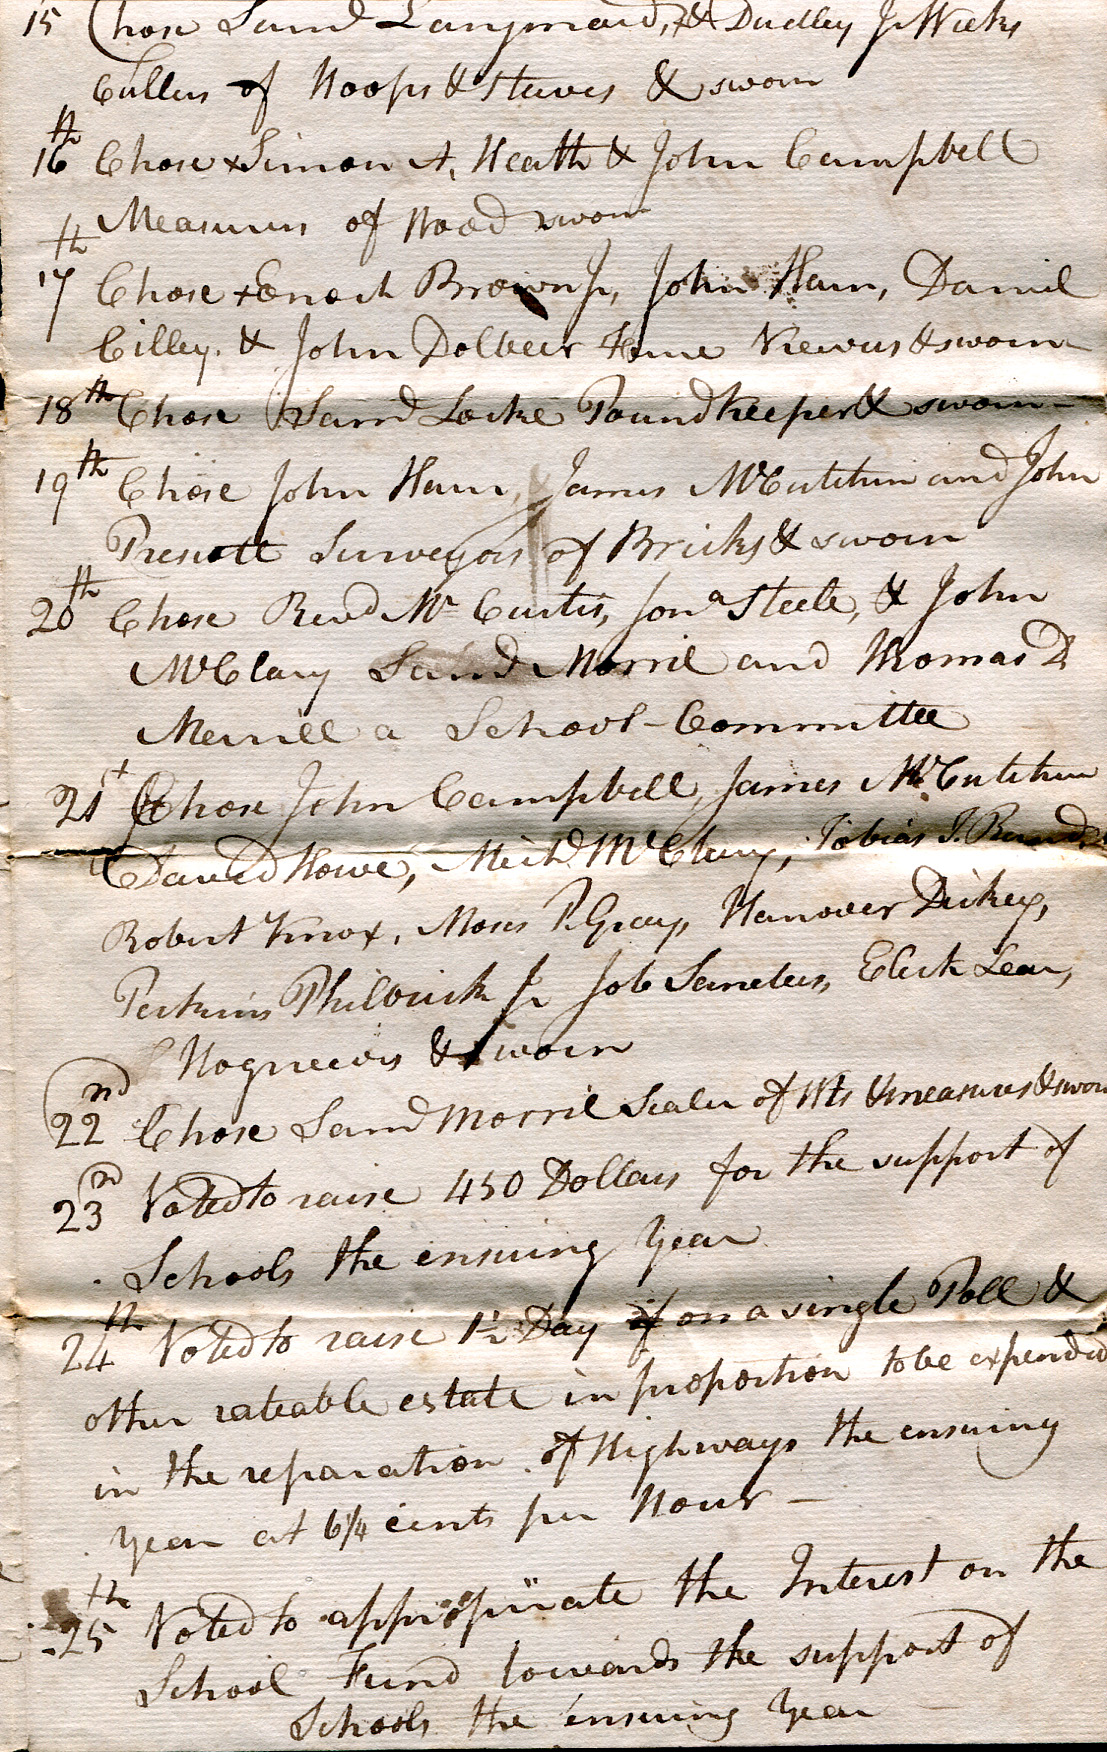 15 Chose Saml Langmaid, & Dudley Jr Weeks
Cullers of Hoops & Staves & sworn
16th Chose × Simon A. Heath & John Campbell
Measurers of Wood sworn
17th Chose × Enoch Brown Jr, John Ham, Daniel
Cilley. & John Dolbeer Fence Viewers & sworn
18th Chose Saml Locke Poundkeeper & sworn -
19th Chose John Ham, James McCutchin and John
Prescott Surveyors of Bricks & sworn
20th Chose Revd Mr Curtis, Jona Steele, & John
McClary Saml Morril and Thomas D
Merrill a School-Committee
21st Chose John Campbell, James McCutchin
David Howe, Michl McClary, Tobias T.
Robert Knox, Moses P. Gray, Hanover Dickey,
Perkins Philbrick Jr Job Sanders, Elect Lear,
Hogreevs & sworn
22nd Chose Saml Morril Sealer of Wts & measures & sworn
23d Voted to raise 450 Dollars for the support of
Schools the ensuing Year
24th Voted to raise 1½ Day if on a single Poll &
other rateable estate in proportion to be expended
in the reparation of Highways the ensuing
year at 6¼ cents per Hour -
25th Voted to appropriate the Interest on the
School Fund towards the support of
Schools the ensuing Year